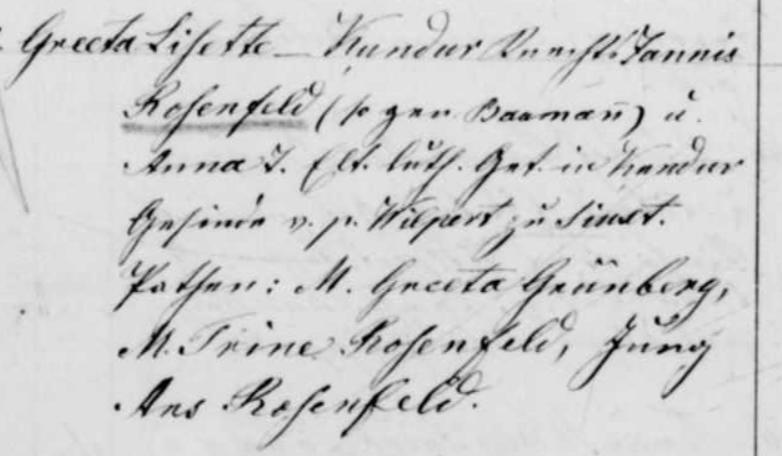 Greeta Lisette – Kundur Knechts Jannis
Rosenfeld (so gen. Baumañ) u.
Anna T. Elt. luth. Get. in Kundur
Gesinde v. p. Wilpert zu Siuxt.
Pathen: M. Greeta Grünberg,
M. Trine Rosenfeld, Jung
Ans Rosenfeld.